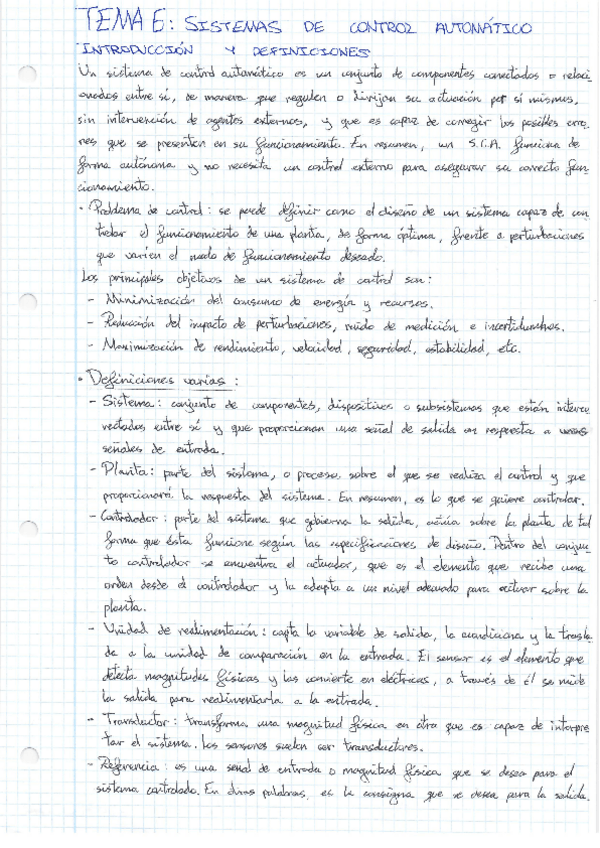 TEMA 6: SISTEMAS DE CONTROL AUTOMÁTICO
INTRODUCCIÓN Y DEFINICIONES
Un sistema de control automático es un conjunto de componentes conectados o relaci
onados entre sí, de manera que regulen o dirijan su actuación por sí mismos,
sin intervención de agentes externos, y que es capaz de corregir los posibles erro
res que se presenten en su funcionamiento. En resumen, un S.C.A. funciona de
forma autónoma y no necesita un control externo para asegurar su correcto fun
cionamiento.
· Problema de control: se puede definir como el diseño de un sistema capaz de con
trolar el funcionamiento de una planta, de forma óptima, frente a perturbaciones
que varíen el modo de funcionamiento deseado.
Los principales objetivos de un sistema de control son:
- Minimización del consumo de energía y recursos.
- Reducción del impacto de perturbaciones, ruido de medición e incertidumbres.
- Maximización de rendimiento, velocidad, seguridad, estabilidad, etc.
· Definiciones varias:
- Sistema: conjunto de componentes, dispositivos o subsistemas que están interco
nectados entre sí y que proporcionan una señal de salida en respuesta a unas
señales de entrada.
- Planta: parte del sistema, o proceso, sobre el que se realiza el control y que
proporcionará la respuesta del sistema. En resumen, es lo que se quiere controlar.
- Controlador: parte del sistema que gobierna la salida, actúa sobre la planta de tal
forma que ésta funcione según las especificaciones de diseño. Dentro del conjun
to controlador se encuentra el actuador, que es el elemento que recibe una
orden desde el controlador y la adapta a un nivel adecuado para actuar sobre la
planta.
- Unidad de realimentación: capta la variable de salida, la acondiciona y la trasla
da a la unidad de comparación en la entrada. El sensor es el elemento que
detecta magnitudes físicas y las convierte en eléctricas, a través de él se mide
la salida para realimentarla a la entrada.
- Transductor: transforma una magnitud física en otra que es capaz de interpre
tar el sistema. Los sensores suelen ser transductores.
- Referencia: es una señal de entrada o magnitud física que se desea para el
sistema controlado. En otras palabras, es la consigna que se desea para la salida.